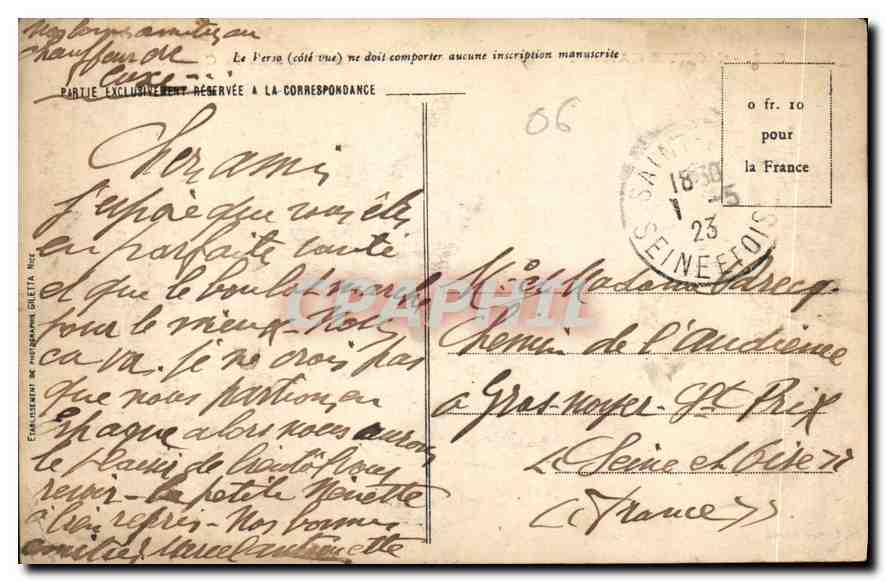 Nos bonnes amitiés au
chauffeur de
Luxe...
Le Verso (côté vue) ne doit comporter aucune inscription manuscrite
PARTIE EXCLUSIVEMENT RÉSERVÉE A LA CORRESPONDANCE
Cher ami
J'espère que vous êtes
en parfaite santé
et que le boulot marche
pour le mieux. Nous
ca va. je ne crois pas
que nous partions en
Espagne alors nous aurons
le plaisir de bientôt vous
revoir - la petite Ninette
a bien repris - Nos bonnes
amitiés Marcel Antoinette
ETABLISSEMENT DE PHOTOGRAPHIE GILETTA NICE
06
0 fr. 10
pour
la France
SAINT
18 30
1 -5
23
SEINE ET OISE
Mr et Madame
Chemin de l'Audience
a Gros-noyer-St Prix
(Seine et Oise)
(France)
CPAPHIL